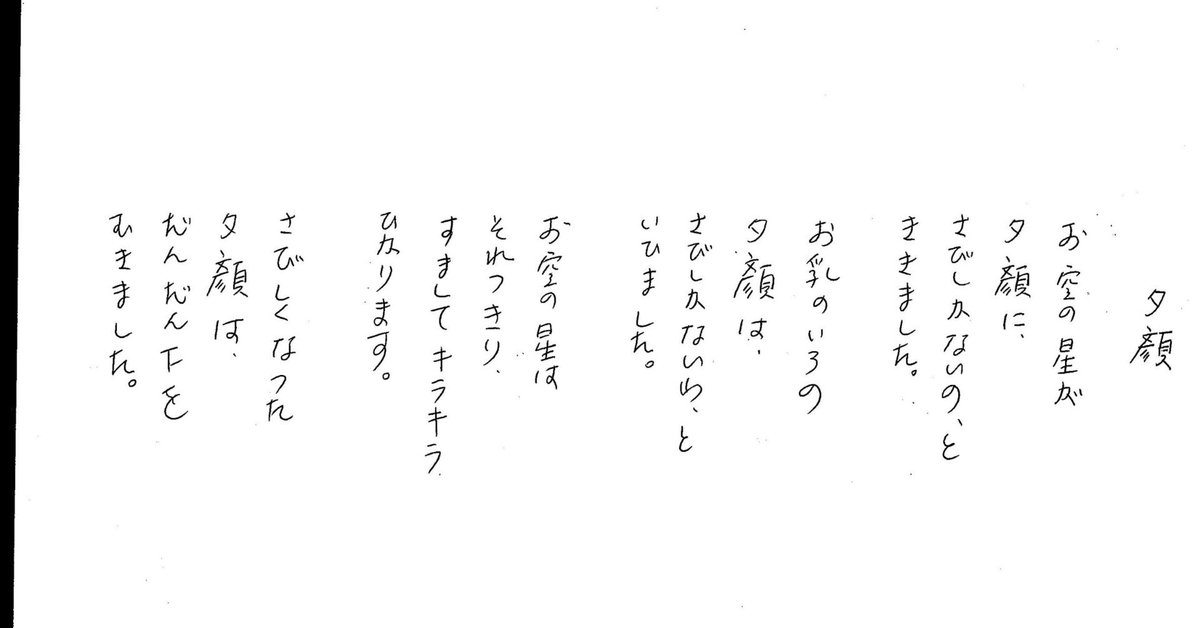 夕顔
お空の星が
夕顔に、
さびしかないの、と
ききました。
お乳のいろの
夕顔は、
さびしかないわ、と
いひました。
お空の星は
それつきり、
すましてキラキラ
ひかります。
さびしくなつた
夕顔は、
だんだん下を
むきました。